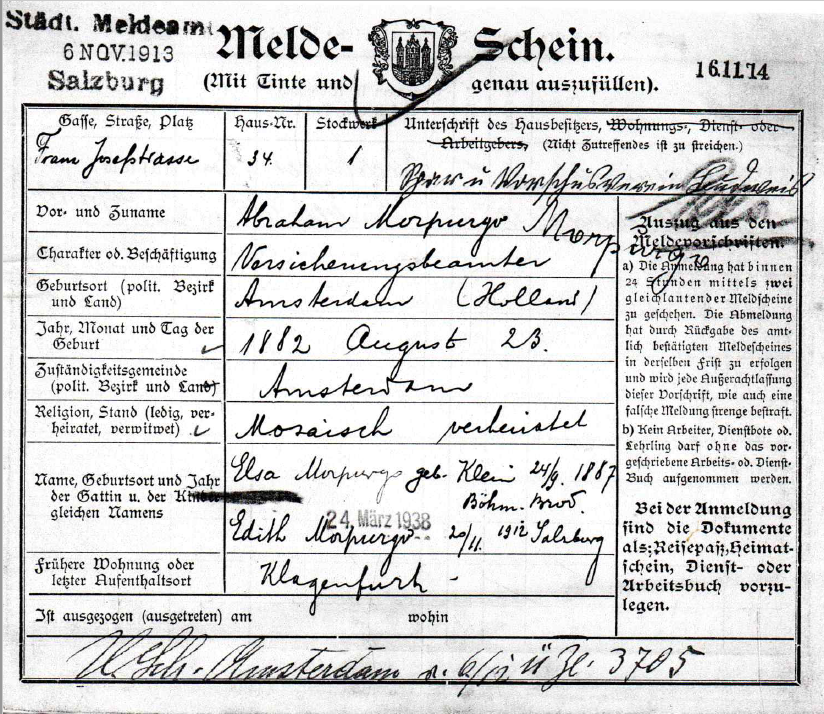 Städt. Meldeamt
6 NOV. 1913
Salzburg
Melde-Schein.
(Mit Tinte und genau auszufüllen).
16.11.14
Gasse, Straße, Platz
Franz Josefstrasse
Haus-Nr.
34.
Stockwerk
1
Unterschrift des Hausbesitzers, Wohnungs-, Dienst- oder
Arbeitgebers, (Nicht Zutreffendes ist zu streichen.)
Spar u Vorschussverein Budweis
Vor- und Zuname
Abraham Morpurgo Morpurgo
Charakter od. Beschäftigung
Versicherungsbeamter
Geburtsort (polit. Bezirk
und Land)
Amsterdam (Holland)
Jahr, Monat und Tag der
Geburt
1882 August 23.
Zuständigkeitsgemeinde
(polit. Bezirk und Land)
Amsterdam
Religion, Stand (ledig, ver-
heiratet, verwitwet)
Mosaisch verheiratet
Name, Geburtsort und Jahr
der Gattin u. der Kinder
gleichen Namens
Elsa Morpurgo geb. Klein 24/9. 1887
Böhm. Brod.
24. März 1938
Edith Morpurgo 20/11. 1912 Salzburg
Frühere Wohnung oder
letzter Aufenthaltsort
Klagenfurt -
Ist ausgezogen (ausgetreten) am wohin
Auszug aus den
Meldevorschriften.
a) Die Anmeldung hat binnen
24 Stunden mittels zwei
gleichlautender Meldscheine
zu geschehen. Die Abmeldung
hat durch Rückgabe des amt-
lich bestätigten Meldescheines
in derselben Frist zu erfolgen
und wird jede Außerachtlassung
dieser Vorschrift, wie auch eine
falsche Meldung strenge bestraft.
b) Kein Arbeiter, Dienstbote od.
Lehrling darf ohne das vor-
geschriebene Arbeits- od. Dienst-
Buch aufgenommen werden.
Bei der Anmeldung
sind die Dokumente
als: Reisepaß, Heimat-
schein, Dienst- oder
Arbeitsbuch vorzu-
legen.
Amsterdam v. Zl. 3705